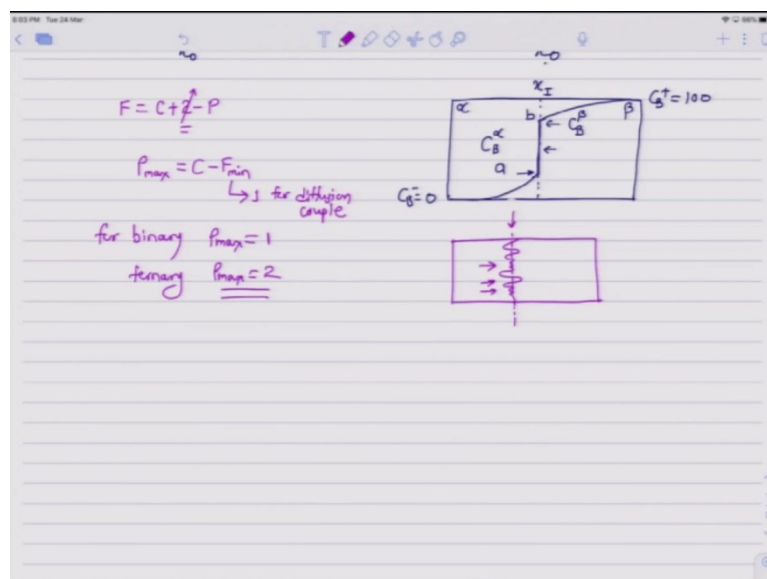 8:03 PM Tue 24 Mar
66%
T
~0
~0
F = C+2-P
Pmax = C-Fmin
↳ 1 for diffusion
couple
for binary Pmax = 1
ternary Pmax = 2
x_I
α
β
C_B^+ = 100
b
C_B^β
C_B^α
a
C_B^- = 0